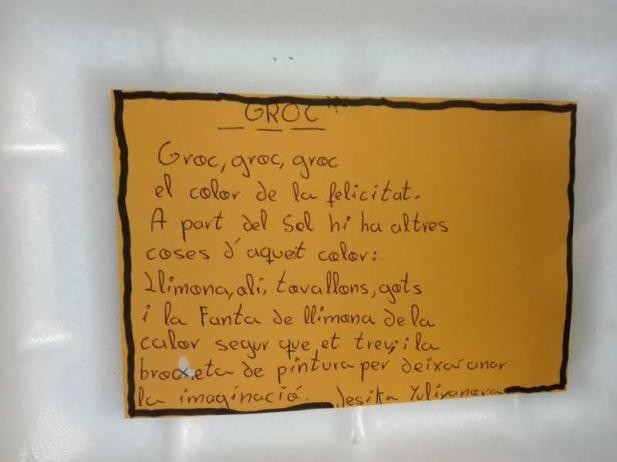 GROC
Groc, groc, groc
el color de la felicitat.
A part del Sol hi ha altres
coses d'aquet color:
Llimona, oli, tovallons, gots
i la Fanta de llimona de la
calor segur que et treu; i la
brocheta de pintura per deixar anar
la imaginació. Jesika Yulivanova